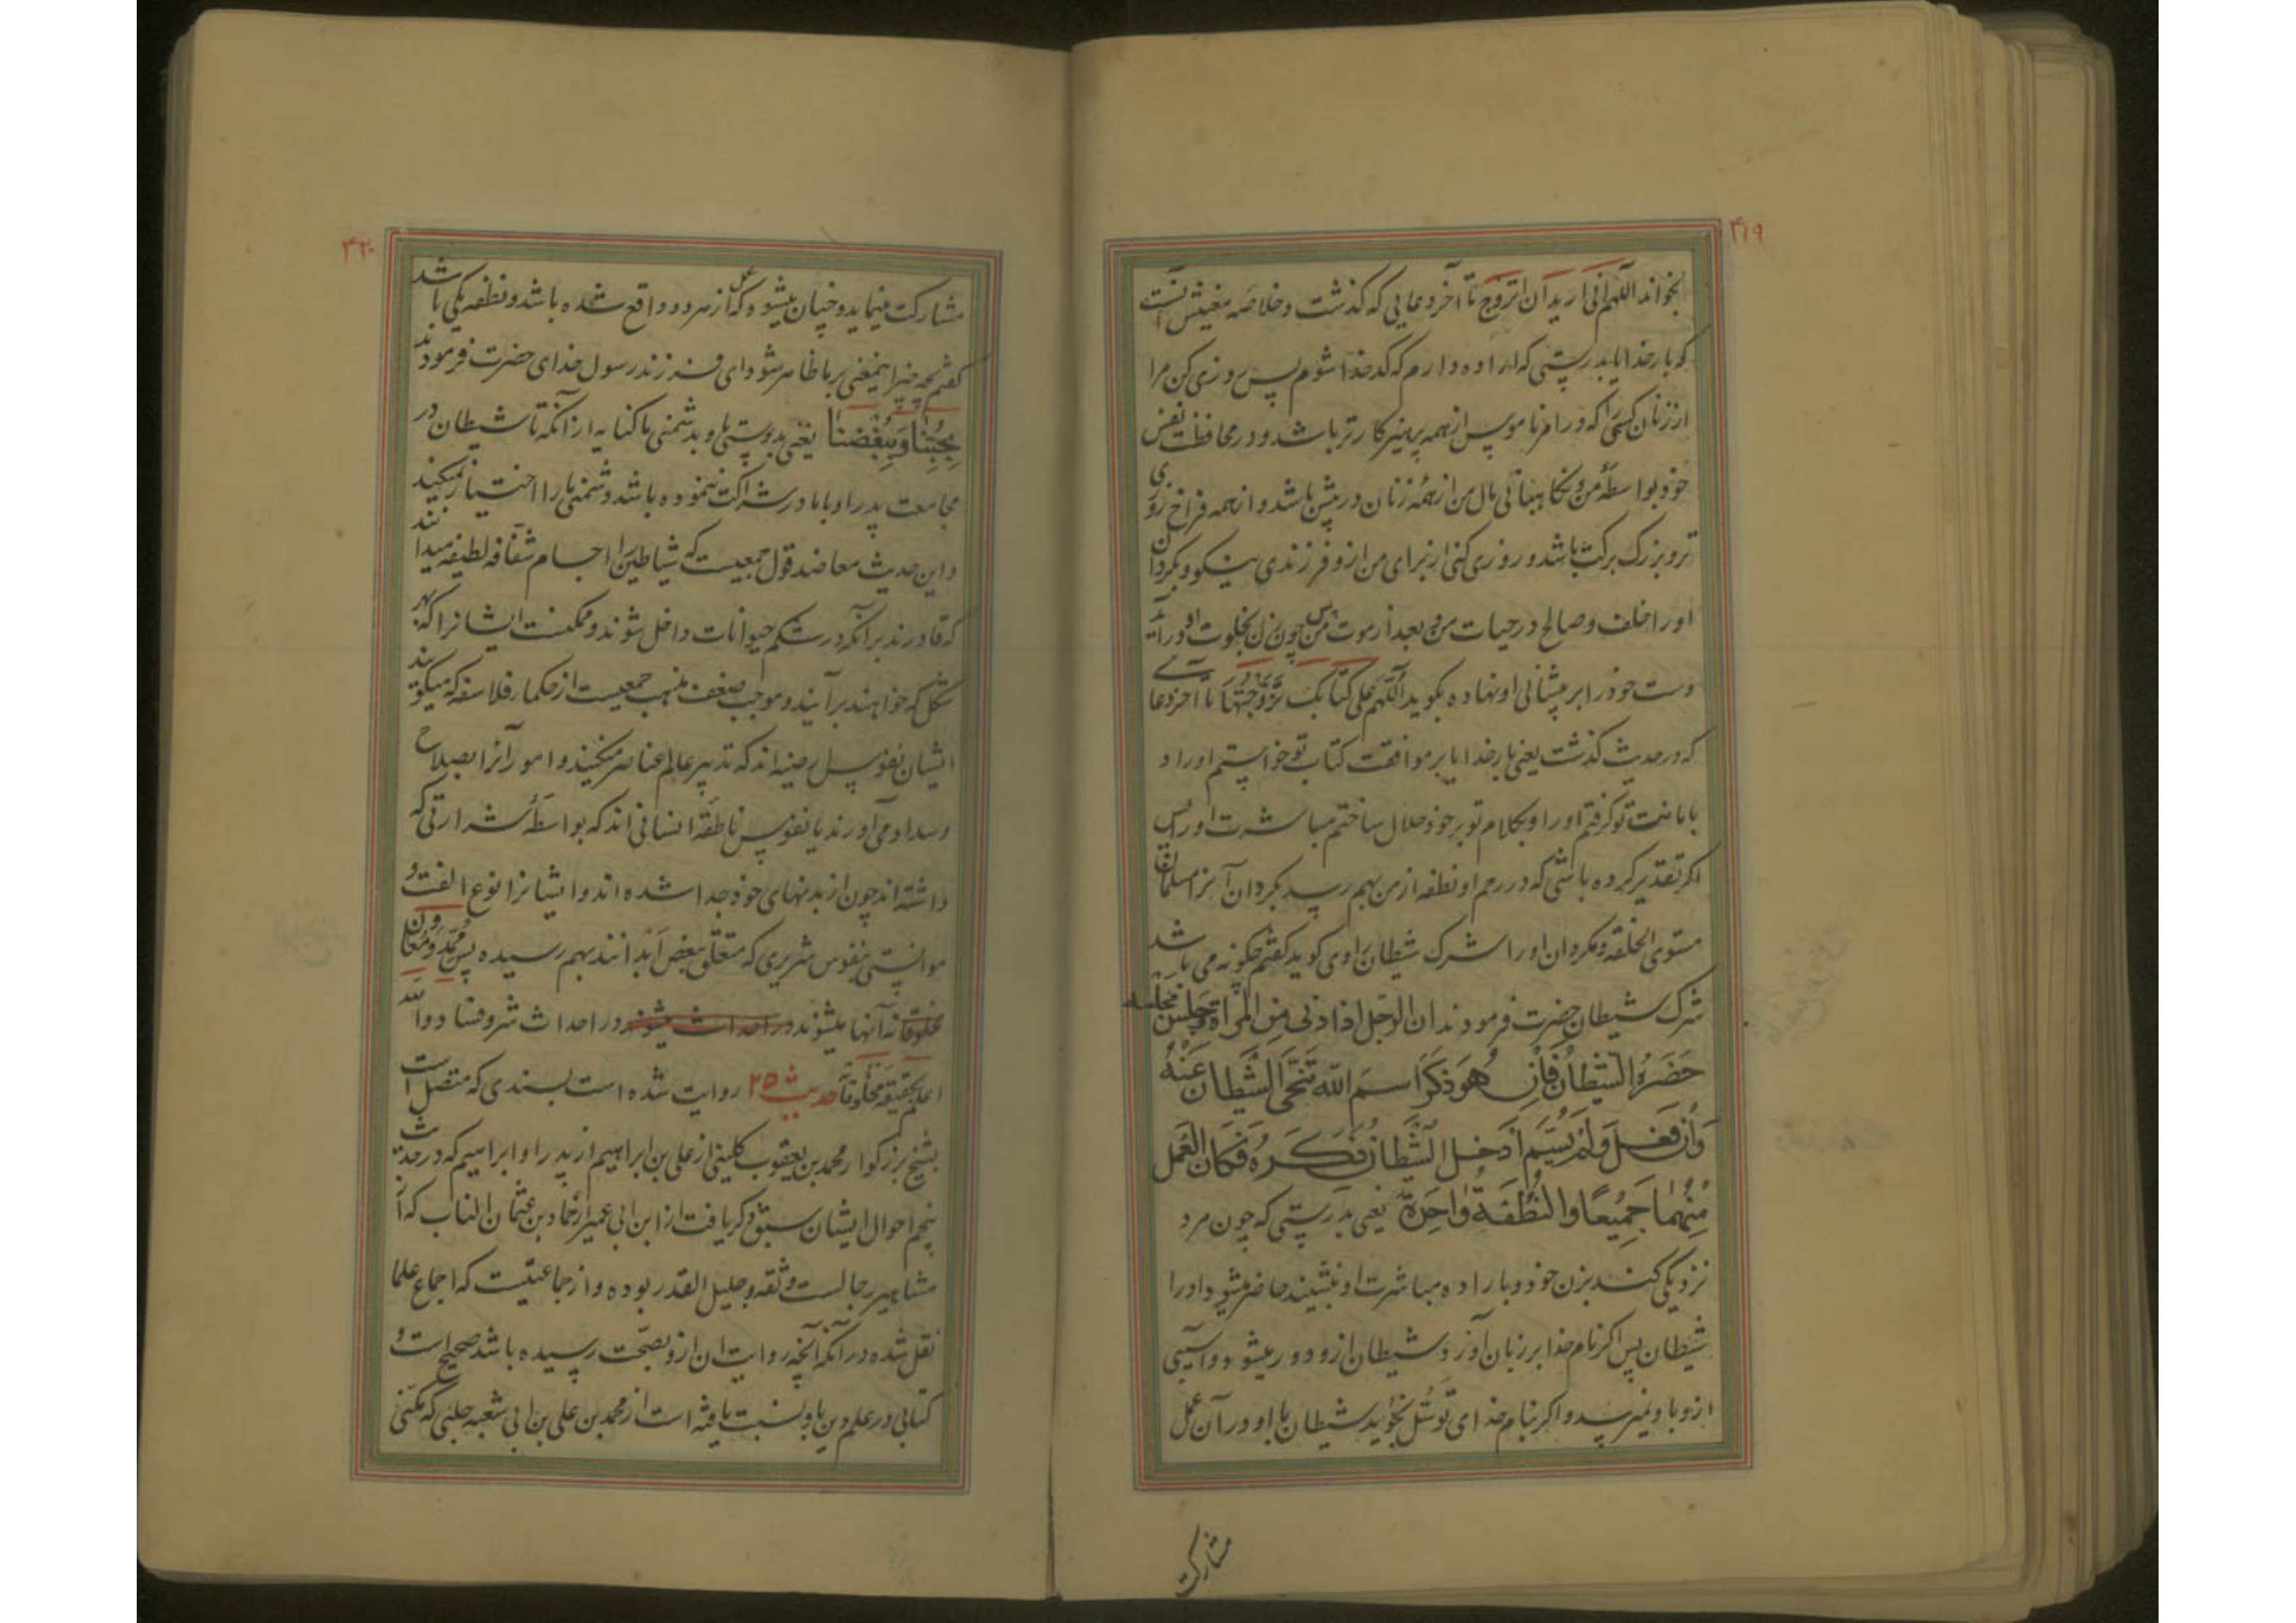 ۴۱۹
بخواند اللهم انی ارید ان اتزوج تا آخر دعایی که گذشت و خلاصه معنیش آنست
که بار خدایا بدرستی که اراده دارم که کدخدا شوم پس روزی کن مرا
از زنان کسی را که در امر ناموس از همه پرهیزکارتر باشد و در محافظت نفس
خود بواسطهٔ من و نکاهبانی مال من از همهٔ زنان در پیش باشد و از همه فراخ روزی
تر و بزرک برکت باشد و روزی کنی از برای من ازو فرزندی نیکو و بکردان
او را خلف و صالح در حیات من و بعد از موت من پس چون زن بخلوت او درآید
دست خود را بر پیشانی او نهاده بکوید اللهم علی کتابک تزوجتها تا آخر دعائی
که در حدیث کذشت یعنی بار خدایا بر موافقت کتاب تو خواستم او را و
بامانت تو کرفتم او را و بکلام تو بر خود حلال ساختم مباشرت او را پس
اکر تقدیر کرده باشی که در رحم او نطفه از من بهم رسد بکردان آنرا مسلمان
مستوی الخلقه و مکردان او را شرک شیطان راوی کوید کفتم چکونه می باشد
شرک شیطان حضرت فرمودند ان الرجل اذا دنی من المراة و جلس مجلسه
حَضَرَهُ الشیطان فَاِن هُوَ ذَکَرَ اسمَ اللّٰه تَنَحَّی الشَّیطان عَنْهُ
وَاِن فَعَلَ وَلَمْ یُسَمِّ اَدخَل الشَّیطانُ ذَکَرَهُ فَکان العَمل
مِنْهُما جَمِیْعًا وَ النُّطْفَةُ وٰاحِدَة یعنی بدرستی که چون مرد
نزدیکی کند بزن خود و باراده مباشرت او بنشیند حاضر میشود او را
شیطان پس اکر نام خدا بر زبان آورد شیطان ازو دور میشود و آسیبی
ازو باو نمیرسد و اکر بنام خدای توسل نجوید شیطان با او در آن عمل
مشارکت
۴۲۰
مشارکت مینماید و چنان میشود که عمل از هر دو واقع شده باشد و نطفه یکی باشد
کفتم بچه چیز اینمعنی بر ما ظاهر شود ای فرزند رسول خدای حضرت فرمودند
بِحُبِّنا وَ بِبُغْضِنا یعنی بدوستی ما و بدشمنی ما کنایه از آنکه تا شیطان در
مجامعت پدر او با مادر شراکت ننموده باشد دشمنی ما را اختیار نمیکند
و این حدیث معاضد قول جمعیست که شیاطین را اجسام شفافه لطیفه میدانند
که قادرند بر آنکه در شکم حیوانات داخل شوند و ممکنست ایشانرا که بهر
شکل که خواهند برآیند و موجب ضعف مذهب جمعیست از حکما و فلاسفه که میکویند
ایشان نفوس ارضیه اند که تدبیر عالم عناصر میکنند و امور آنرا بصلاح
و سداد می آورند یا نفوس ناطقهٔ انسانی اند که بواسطهٔ شرارتی که
داشته اند چون از بدنهای خود جدا شده اند و ایشانرا نوع الفت و
موانستی بنفوس شریری که متعلق ببعض ابدانند بهم رسیده پس ممد و معاون
آنها میشوند در احداث میشوند در احداث شر و فساد و الله
اعلم بحقیقة مخلوقاته حدیث ۲۵ روایت شده است بسندی که متصل است
بشیخ بزرکوار محمد بن یعقوب کلینی از علی بن ابراهیم از پدر او ابراهیم که در حدیث
پنجم احوال ایشان سبق ذکر یافت از ابن ابی عمیر از حماد بن عثمان الناب که از
مشاهیر رجالست و ثقه و جلیل القدر بوده و از جماعتیست که اجماع علما
نقل شده در آنکه آنچه روایت آن ازو بصحت رسیده باشد صحیح است و
کتابی در علم دین باو نسبت یافته است از محمد بن علی بن ابی شعبه حلبی که مکنی